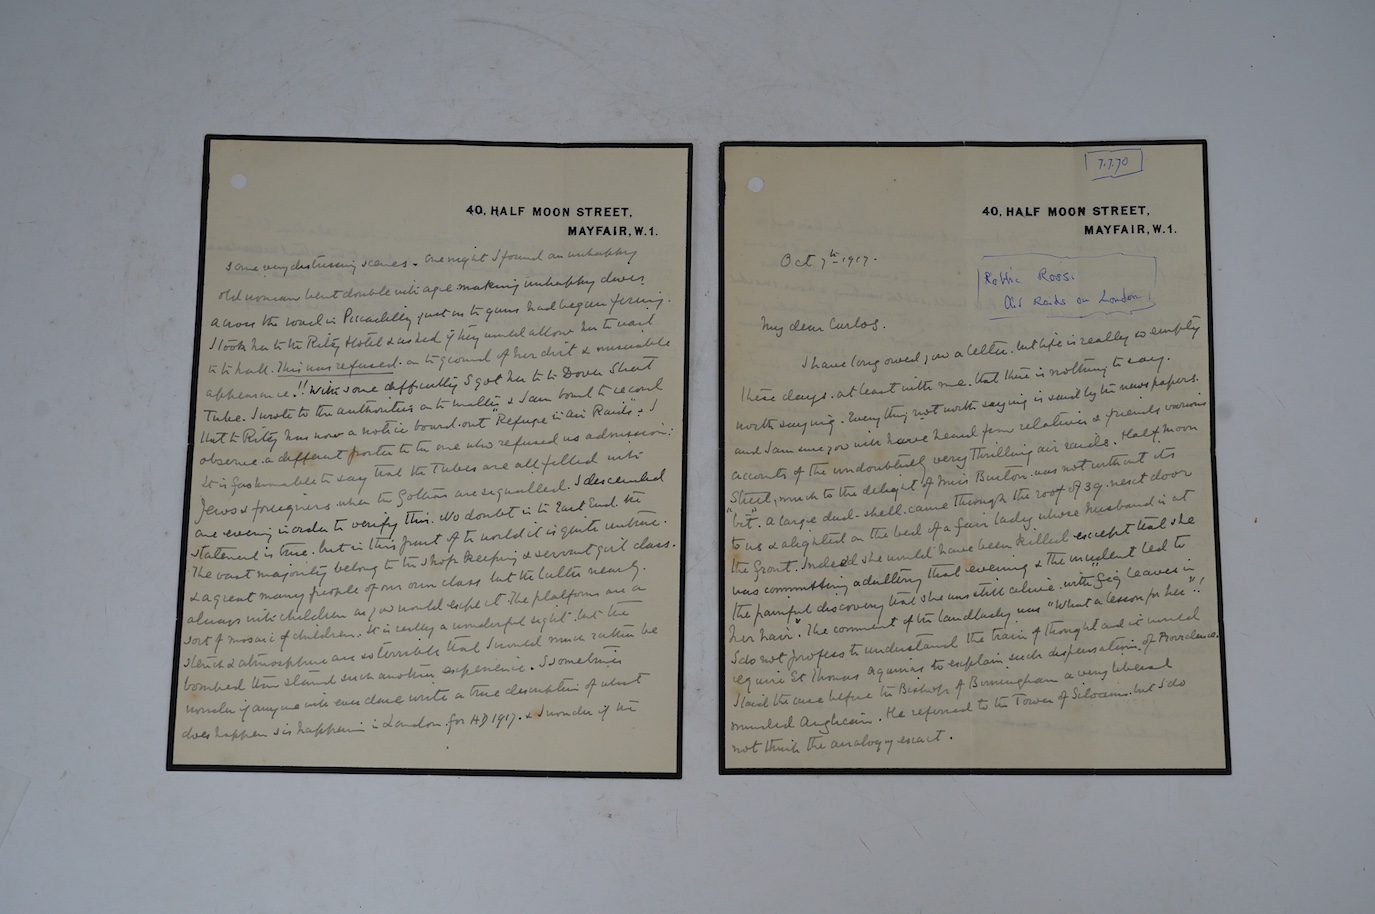 40, HALF MOON STREET,
MAYFAIR, W.1.
some very distressing scenes. One night I found an unhappy
old woman bent double with age making unhappy dives
across the road in Piccadilly just as the guns had begun firing.
I took her to the Ritz Hotel & asked if they would allow her to wait
in the hall. This was refused. on the ground of her dirt & miserable
appearance.!! With some difficulty I got her to the Dover Street
Tube. I wrote to the authorities on the matter & I am bound to record
that the Ritz has now a notice board out "Refuge in Air Raids". & I
observe a different porter to the one who refused us admission:
It is fashionable to say that the Tubes are all filled with
Jews & foreigners when the Gothas are signalled. I descended
one evening in order to verify this. No doubt in the East End the
statement is true. but in this part of the world it is quite untrue.
The vast majority belong to the shop keeping & servant girl class.
& a great many people of our own class but the latter nearly
always with children as you would expect. The platforms are a
sort of mosaic of children. It is really a wonderful sight but the
stench & atmosphere are so terrible that I would much rather be
bombed than stand such another experience. I sometimes
wonder if anyone will ever dare write a true description of what
does happen & is happening in London. for A.D 1917. & I wonder if the
7.7.70
40, HALF MOON STREET,
MAYFAIR, W.1.
Oct 7th 1917.
Robbie Ross:
Air Raids on London!
My dear Carlos.
I have long owed you a letter. but life is really so empty
these days. at least with me. that there is nothing to say.
worth saying. Everything not worth saying is said by the newspapers.
and I am sure you will have heard from relatives & friends various
accounts of the undoubtedly very thrilling air raids. Half moon
Street, much to the delight of Miss Burton. was not without its
"bit". A large dud-shell came through the roof of 39. next door
to us & alighted on the bed of a fair lady whose husband is at
the front. Indeed she would have been killed except that she
was committing adultery that evening & the incident led to
the painful discovery that she was still alive. with "fig leaves in
her hair". The comment of the landlady was "What a lesson for her"!
I do not profess to understand the train of thought and it would
require St Thomas Aquinas to explain such dispensation of Providence.
I laid the case before the Bishop of Birmingham a very liberal
minded Anglican. He referred to the Tower of Siloam. but I do
not think the analogy exact.